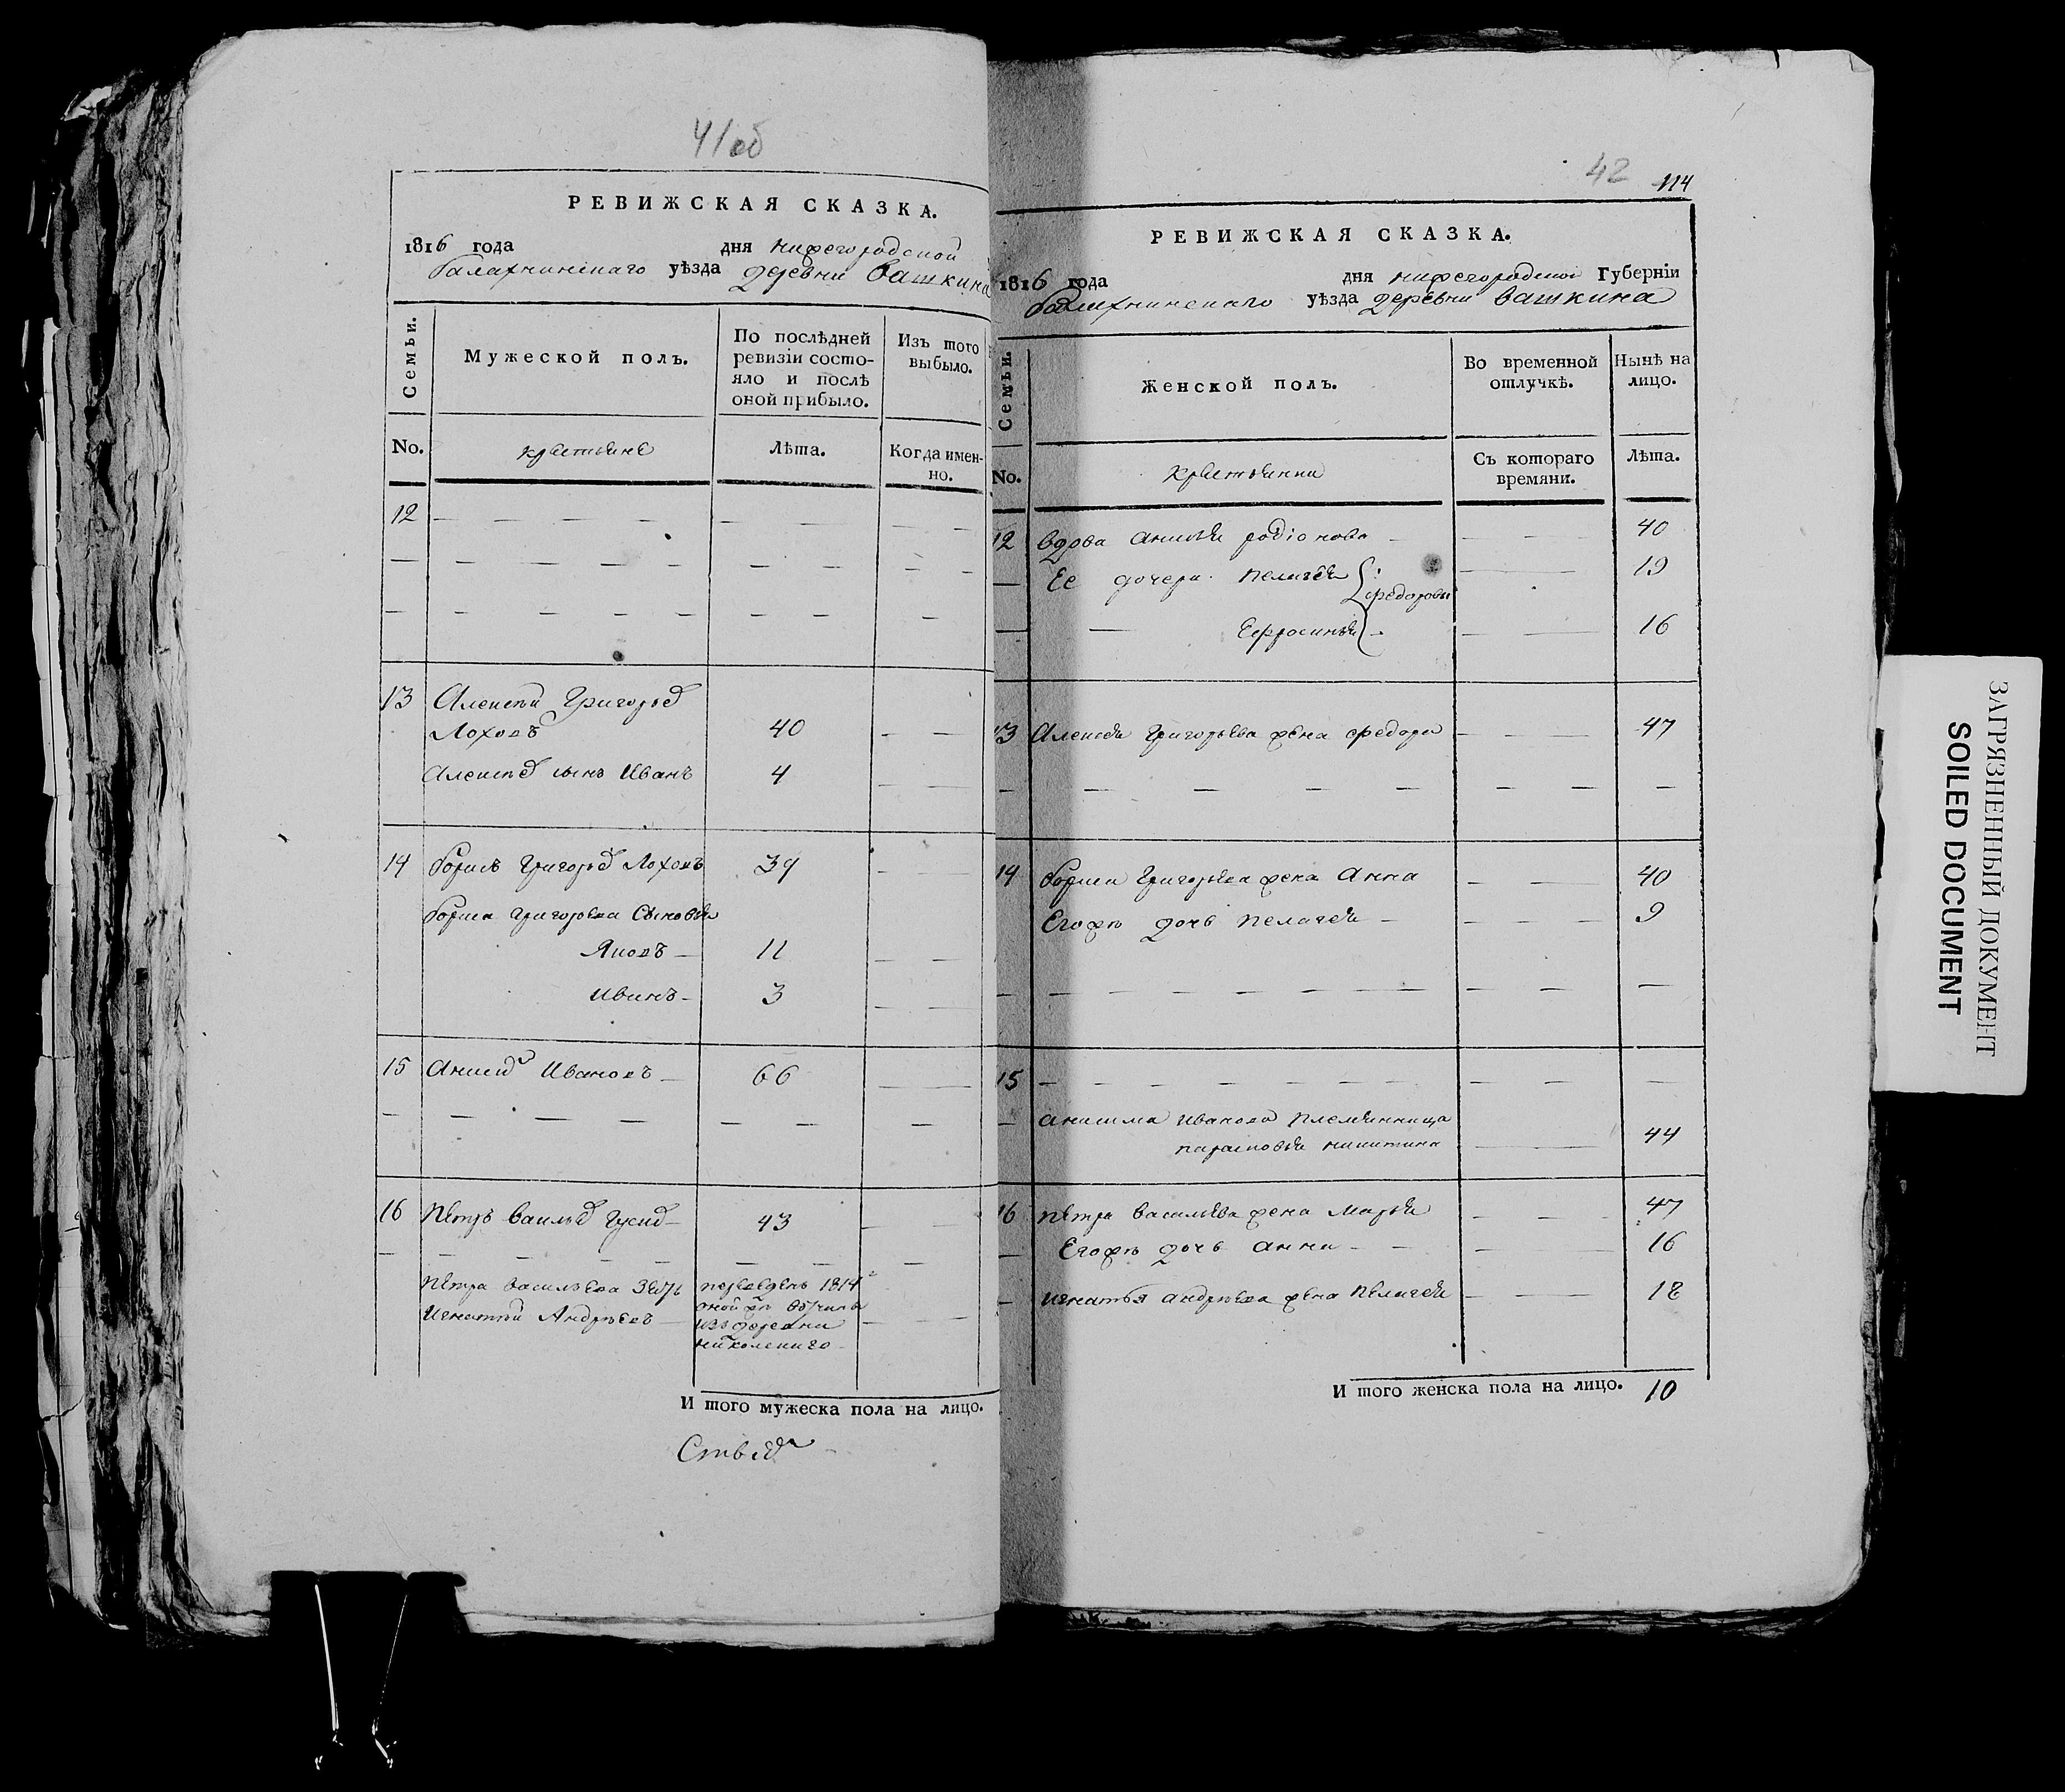 41об
РЕВИЖСКАЯ СКАЗКА.
1816 года дня нижегородской
балахнинскаго уѣзда деревни вашкина
Семьи.
Мужеской полъ.
По послѣдней
ревизіи состо-
яло и послѣ
оной прибыло.
Изъ того
выбыло.
No.
крестьяне
Лѣта.
Когда имен-
но.
12
13 Алексѣй Григорьев
Лоховъ 40
Алексѣев сынъ Иванъ 4
14 борисъ Григорьев Лоховъ 39
бориса григорьева Сыновья
Яковъ 11
иванъ 3
15 Анисим Ивановъ 66
16 Петръ васильев Гусив 43
Петра васильева Зеть переведенъ 1814
Игнатей Андрѣевъ оной жъ вотчины
изъ деревни
никольского
И того мужеска пола на лицо.
42 114
РЕВИЖСКАЯ СКАЗКА.
1816 года дня нижегородской Губерніи
балахнинскаго уѣзда деревни вашкина
Семьи.
Женской полъ.
Во временной
отлучкѣ.
Нынѣ на
лицо.
No.
крестьянки
Съ котораго
времяни.
Лѣта.
12 вдова анисья родіонова 40
Ее дочери пелагея 19
федоровы
Ефросинья 16
13 Алексея григорьева жена федора 47
14 бориса григорьева жена Анна 40
Егожъ дочь пелагея 9
15
анисима иванова племянница
парасковья никитина 44
16 петра васильева жена марья 47
Егожъ дочь анна 16
игнатья андрѣева жена пелагея 18
И того женска пола на лицо. 10
ЗАГРЯЗНЕННЫЙ ДОКУМЕНТ
SOILED DOCUMENT